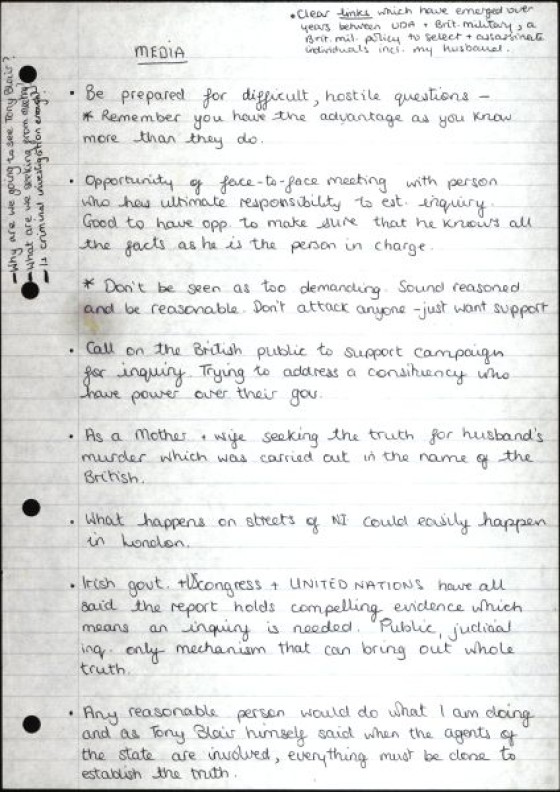 • Clear links which have emerged over
years between UDA + Brit. military, a
Brit. mil. policy to select + assassinate
individuals incl. my husband.
MEDIA
– Why are we going to see Tony Blair?
– What are we seeking from meeting
– Is criminal investigation enough?
• Be prepared for difficult, hostile questions –
* Remember you have the advantage as you know
more than they do.
• Opportunity of face-to-face meeting with person
who has ultimate responsibility to est. inquiry.
Good to have opp. to make sure that he knows all
the facts as he is the person in charge.
* Don't be seen as too demanding. Sound reasoned
and be reasonable. Don't attack anyone – just want support
• Call on the British public to support campaign
for inquiry. Trying to address a consituency who
have power over their gov.
• As a Mother + wife seeking the truth for husband's
murder which was carried out in the name of the
British.
• What happens on streets of NI could easily happen
in London.
• Irish govt. + US congress + UNITED NATIONS have all
said the report holds compelling evidence which
means an inquiry is needed. Public, judicial
inq. only mechanism that can bring out whole
truth.
• Any reasonable person would do what I am doing
and as Tony Blair himself said when the agents of
the state are involved, everything must be done to
establish the truth.